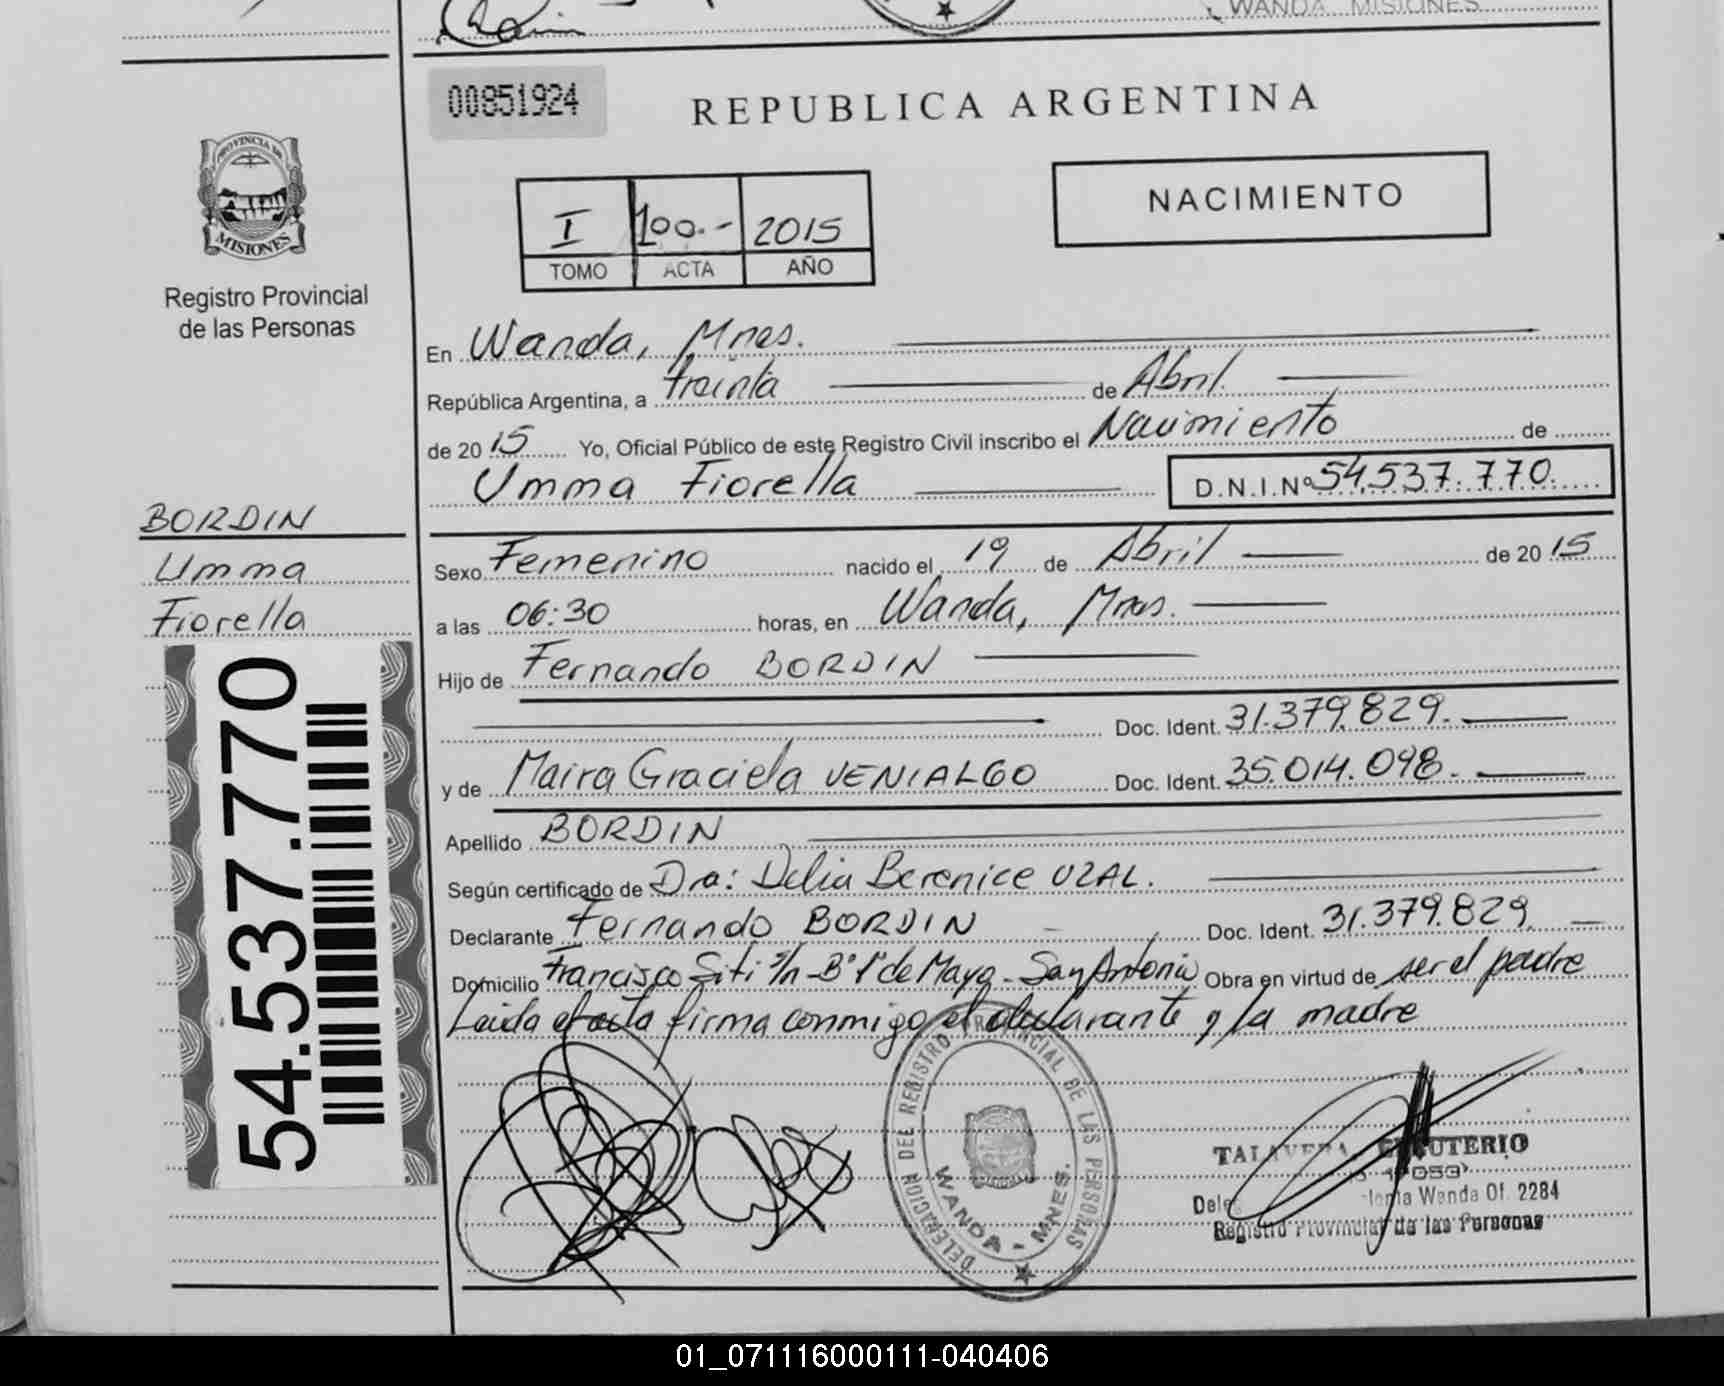 WANDA MISIONES
00851924
REPUBLICA ARGENTINA
PROVINCIA DE
MISIONES
Registro Provincial
de las Personas
NACIMIENTO
I 100.- 2015
TOMO ACTA AÑO
En Wanda, Mnes.
República Argentina, a treinta de Abril.
de 20 15 Yo, Oficial Público de este Registro Civil inscribo el Nacimiento de
Umma Fiorella D.N.I.Nº 54.537.770.
BORDIN
Umma
Fiorella
54.537.770
Sexo Femenino nacido el 19 de Abril de 20 15
a las 06:30 horas, en Wanda, Mnes.
Hijo de Fernando BORDIN
Doc. Ident. 31.379.829.
y de Maira Graciela VENIALGO Doc. Ident. 35.014.098.
Apellido BORDIN
Según certificado de Dra: Delia Berenice UZAL.
Declarante Fernando BORDIN Doc. Ident. 31.379.829.
Domicilio Francisco Siti s/n - Bº 1º de Mayo - San Antonio Obra en virtud de ser el padre
Leida el acta firma conmigo el declarante y la madre
DELEGACION DEL REGISTRO PROVINCIAL DE LAS PERSONAS
WANDA - MNES.
Wanda Of. 2284
Registro Provincial de las Personas
01_071116000111-040406